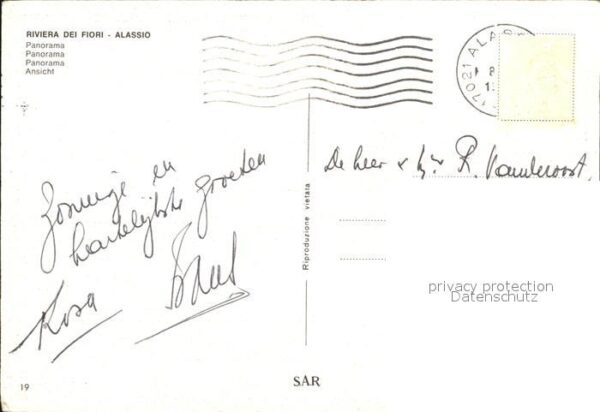 RIVIERA DEI FIORI - ALASSIO
Panorama
Panorama
Panorama
Ansicht
17021 ALASS
Zonnige en
hartelijke groeten
Rosa
De heer &
R. Vanderoost.
Riproduzione vietata
privacy protection
Datenschutz
19
SAR